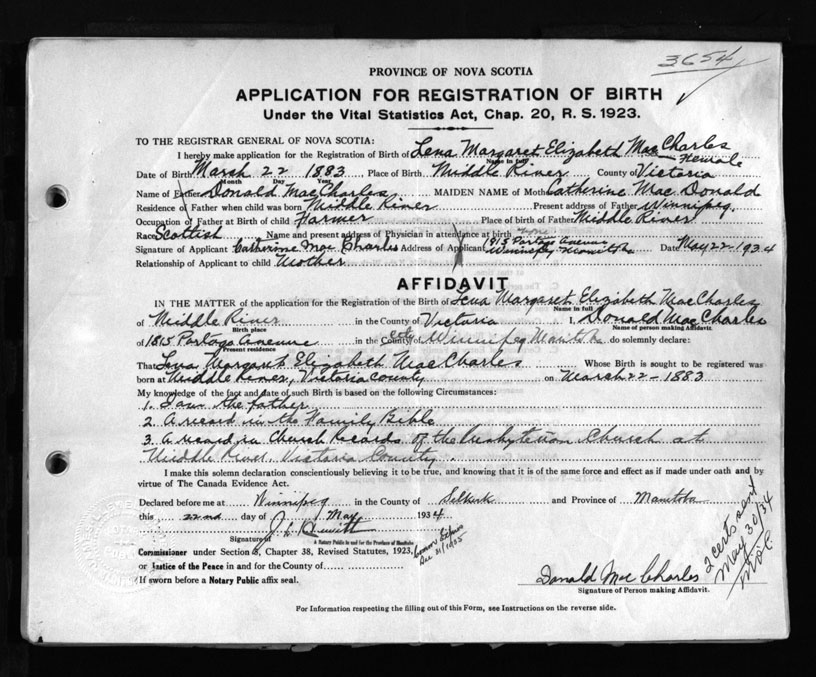 3654
PROVINCE OF NOVA SCOTIA
APPLICATION FOR REGISTRATION OF BIRTH
Under the Vital Statistics Act, Chap. 20, R. S. 1923.
TO THE REGISTRAR GENERAL OF NOVA SCOTIA:
I hereby make application for the Registration of Birth of Lena Margaret Elizabeth MacCharles
Name in full Female
Date of Birth March 22 1883 Place of Birth Middle River County of Victoria
Month Day Year
Name of Father Donald MacCharles MAIDEN NAME of Mother Catherine Mac Donald
Residence of Father when child was born Middle River Present address of Father Winnipeg.
Occupation of Father at Birth of child Farmer Place of birth of Father Middle River
Race Scottish Name and present address of Physician in attendance at birth
Signature of Applicant Catherine Mac Charles Address of Applicant 1815 Portage Avenue Winnipeg Manitoba Date May 22 1934
Relationship of Applicant to child Mother
AFFIDAVIT
IN THE MATTER of the application for the Registration of the Birth of Lena Margaret Elizabeth MacCharles
Name in full
of Middle River in the County of Victoria I, Donald MacCharles
Birth place Name of person making Affidavit.
of 1815 Portage Avenue in the County of Winnipeg Manitoba do solemnly declare:
Present residence
That Lena Margaret Elizabeth MacCharles Whose Birth is sought to be registered was
born at Middle River, Victoria County on March 22 - 1883
My knowledge of the fact and date of such Birth is based on the following Circumstances:
1. I am the father
2. A record in the Family Bible
3. A record in Church Records of the Presbyterian Church at
Middle River, Victoria County.
I make this solemn declaration conscientiously believing it to be true, and knowing that it is of the same force and effect as if made under oath and by
virtue of The Canada Evidence Act.
Declared before me at Winnipeg in the County of Selkirk and Province of Manitoba
this 22nd day of May 1934
Signature of
A Notary Public in and for the Province of Manitoba
Dec 31/1935
Commissioner under Section 8, Chapter 38, Revised Statutes, 1923,
or Justice of the Peace in and for the County of
If sworn before a Notary Public affix seal.
Donald Mac Charles
Signature of Person making Affidavit.
2 certs sent
May 30/34
For Information respecting the filling out of this Form, see Instructions on the reverse side.